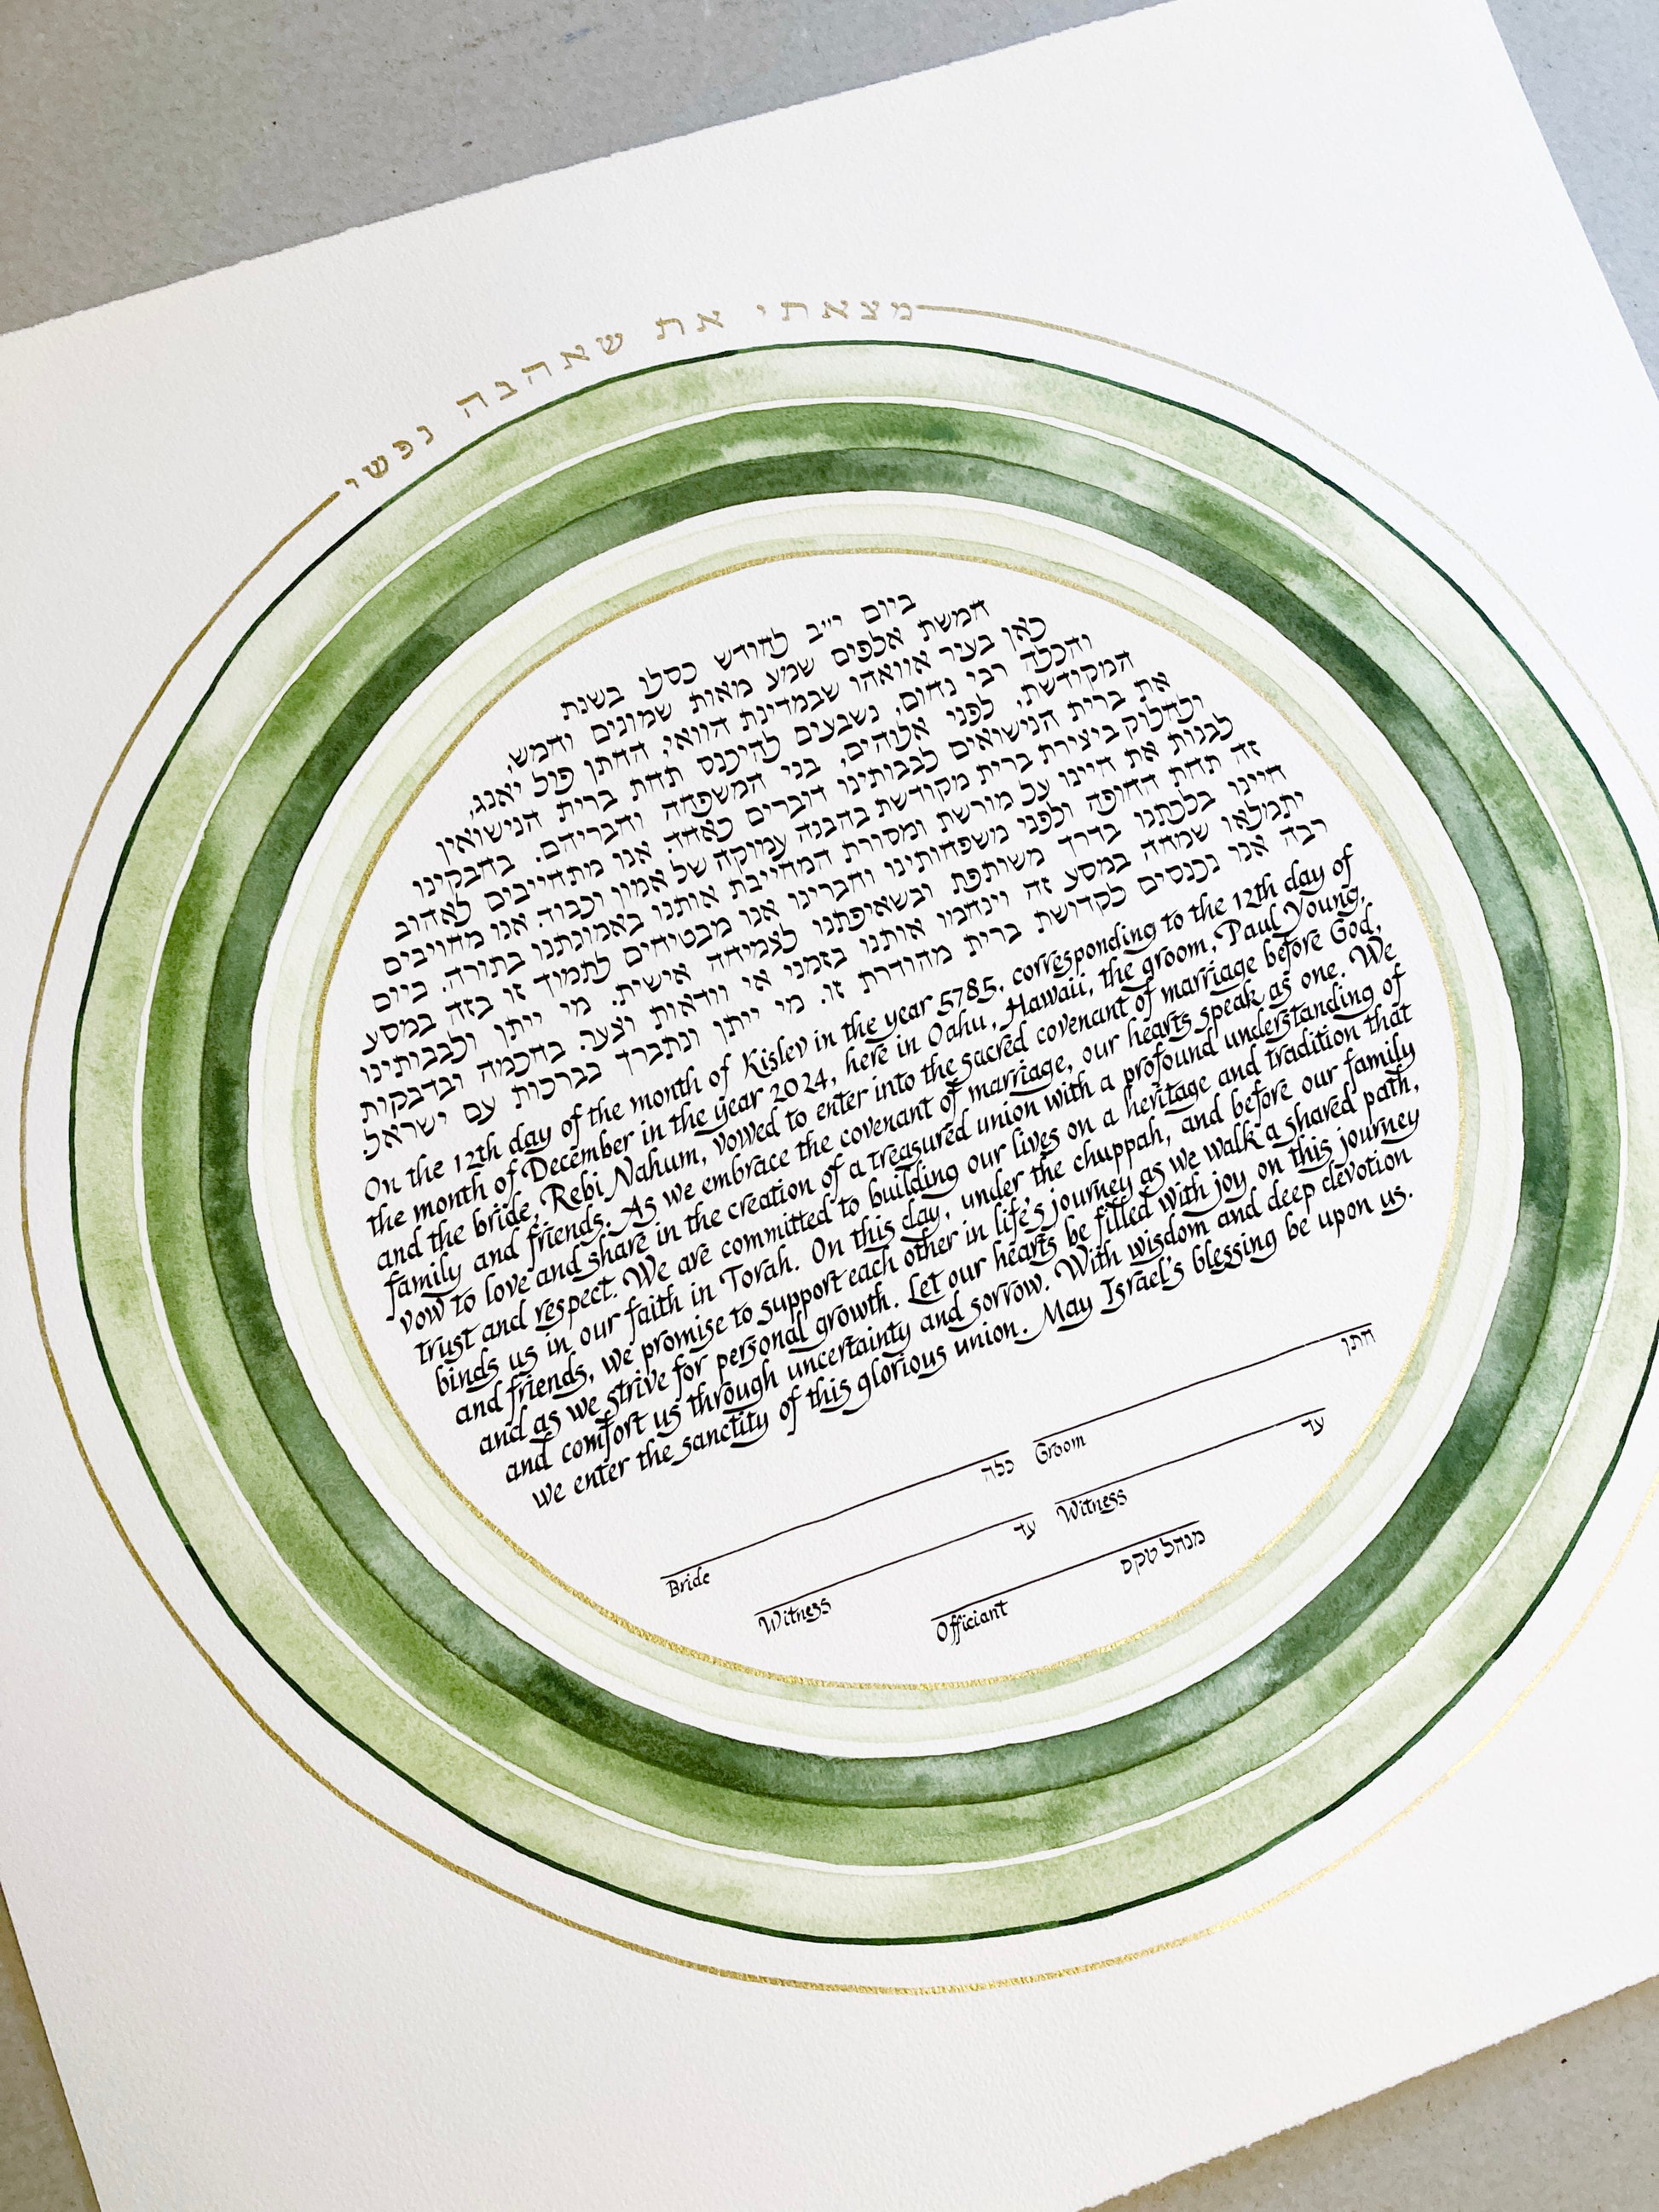 מצאתי את שאהבה נפשי
ביום י״ב לחודש כסלו בשנת
חמשת אלפים שבע מאות שמונים וחמש,
כאן בעיר אוואהו שבמדינת הוואי, החתן פול יאנג,
והכלה רבי נחום, נשבעים להיכנס תחת ברית הנישואין
המקודשת, לפני אלוהים, בני המשפחה וחבריהם. בחבקינו
את ברית הנישואים לבבותינו דוברים כאחד. אנו מתחייבים לאהוב
ולחלוק ביצירת ברית מקודשת בהבנה עמוקה של אמון וכבוד. אנו מחויבים
לבנות את חיינו על מורשת ומסורת המחייבת אותנו באמונתנו בתורה. ביום
זה תחת החופה ולפני משפחותינו וחברינו אנו מבטיחים לתמוך זו בזה במסע
חיינו בלכתנו בדרך משותפת ובשאיפתנו לצמיחה אישית. מי ייתן ולבבותינו
יתמלאו שמחה במסע זה וינחמו אותנו בזמני אי וודאות וצער. בחכמה ובדבקות
רבה אנו נכנסים לקדושת ברית מהודרת זו. מי ייתן ונתברך בברכות עם ישראל.
On the 12th day of the month of Kislev in the year 5785, corresponding to the 12th day of
the month of December in the year 2024, here in Oahu, Hawaii, the groom, Paul Young,
and the bride, Rebi Nahum, vowed to enter into the sacred covenant of marriage before God,
family and friends. As we embrace the covenant of marriage, our hearts speak as one. We
vow to love and share in the creation of a treasured union with a profound understanding of
trust and respect. We are committed to building our lives on a heritage and tradition that
binds us in our faith in Torah. On this day, under the chuppah, and before our family
and friends, we promise to support each other in life's journey as we walk a shared path,
and as we strive for personal growth. Let our hearts be filled with joy on this journey
and comfort us through uncertainty and sorrow. With wisdom and deep devotion
we enter the sanctity of this glorious union. May Israel's blessing be upon us.
Bride כלה Groom חתן
Witness עד Witness עד
Officiant מנהל טקס